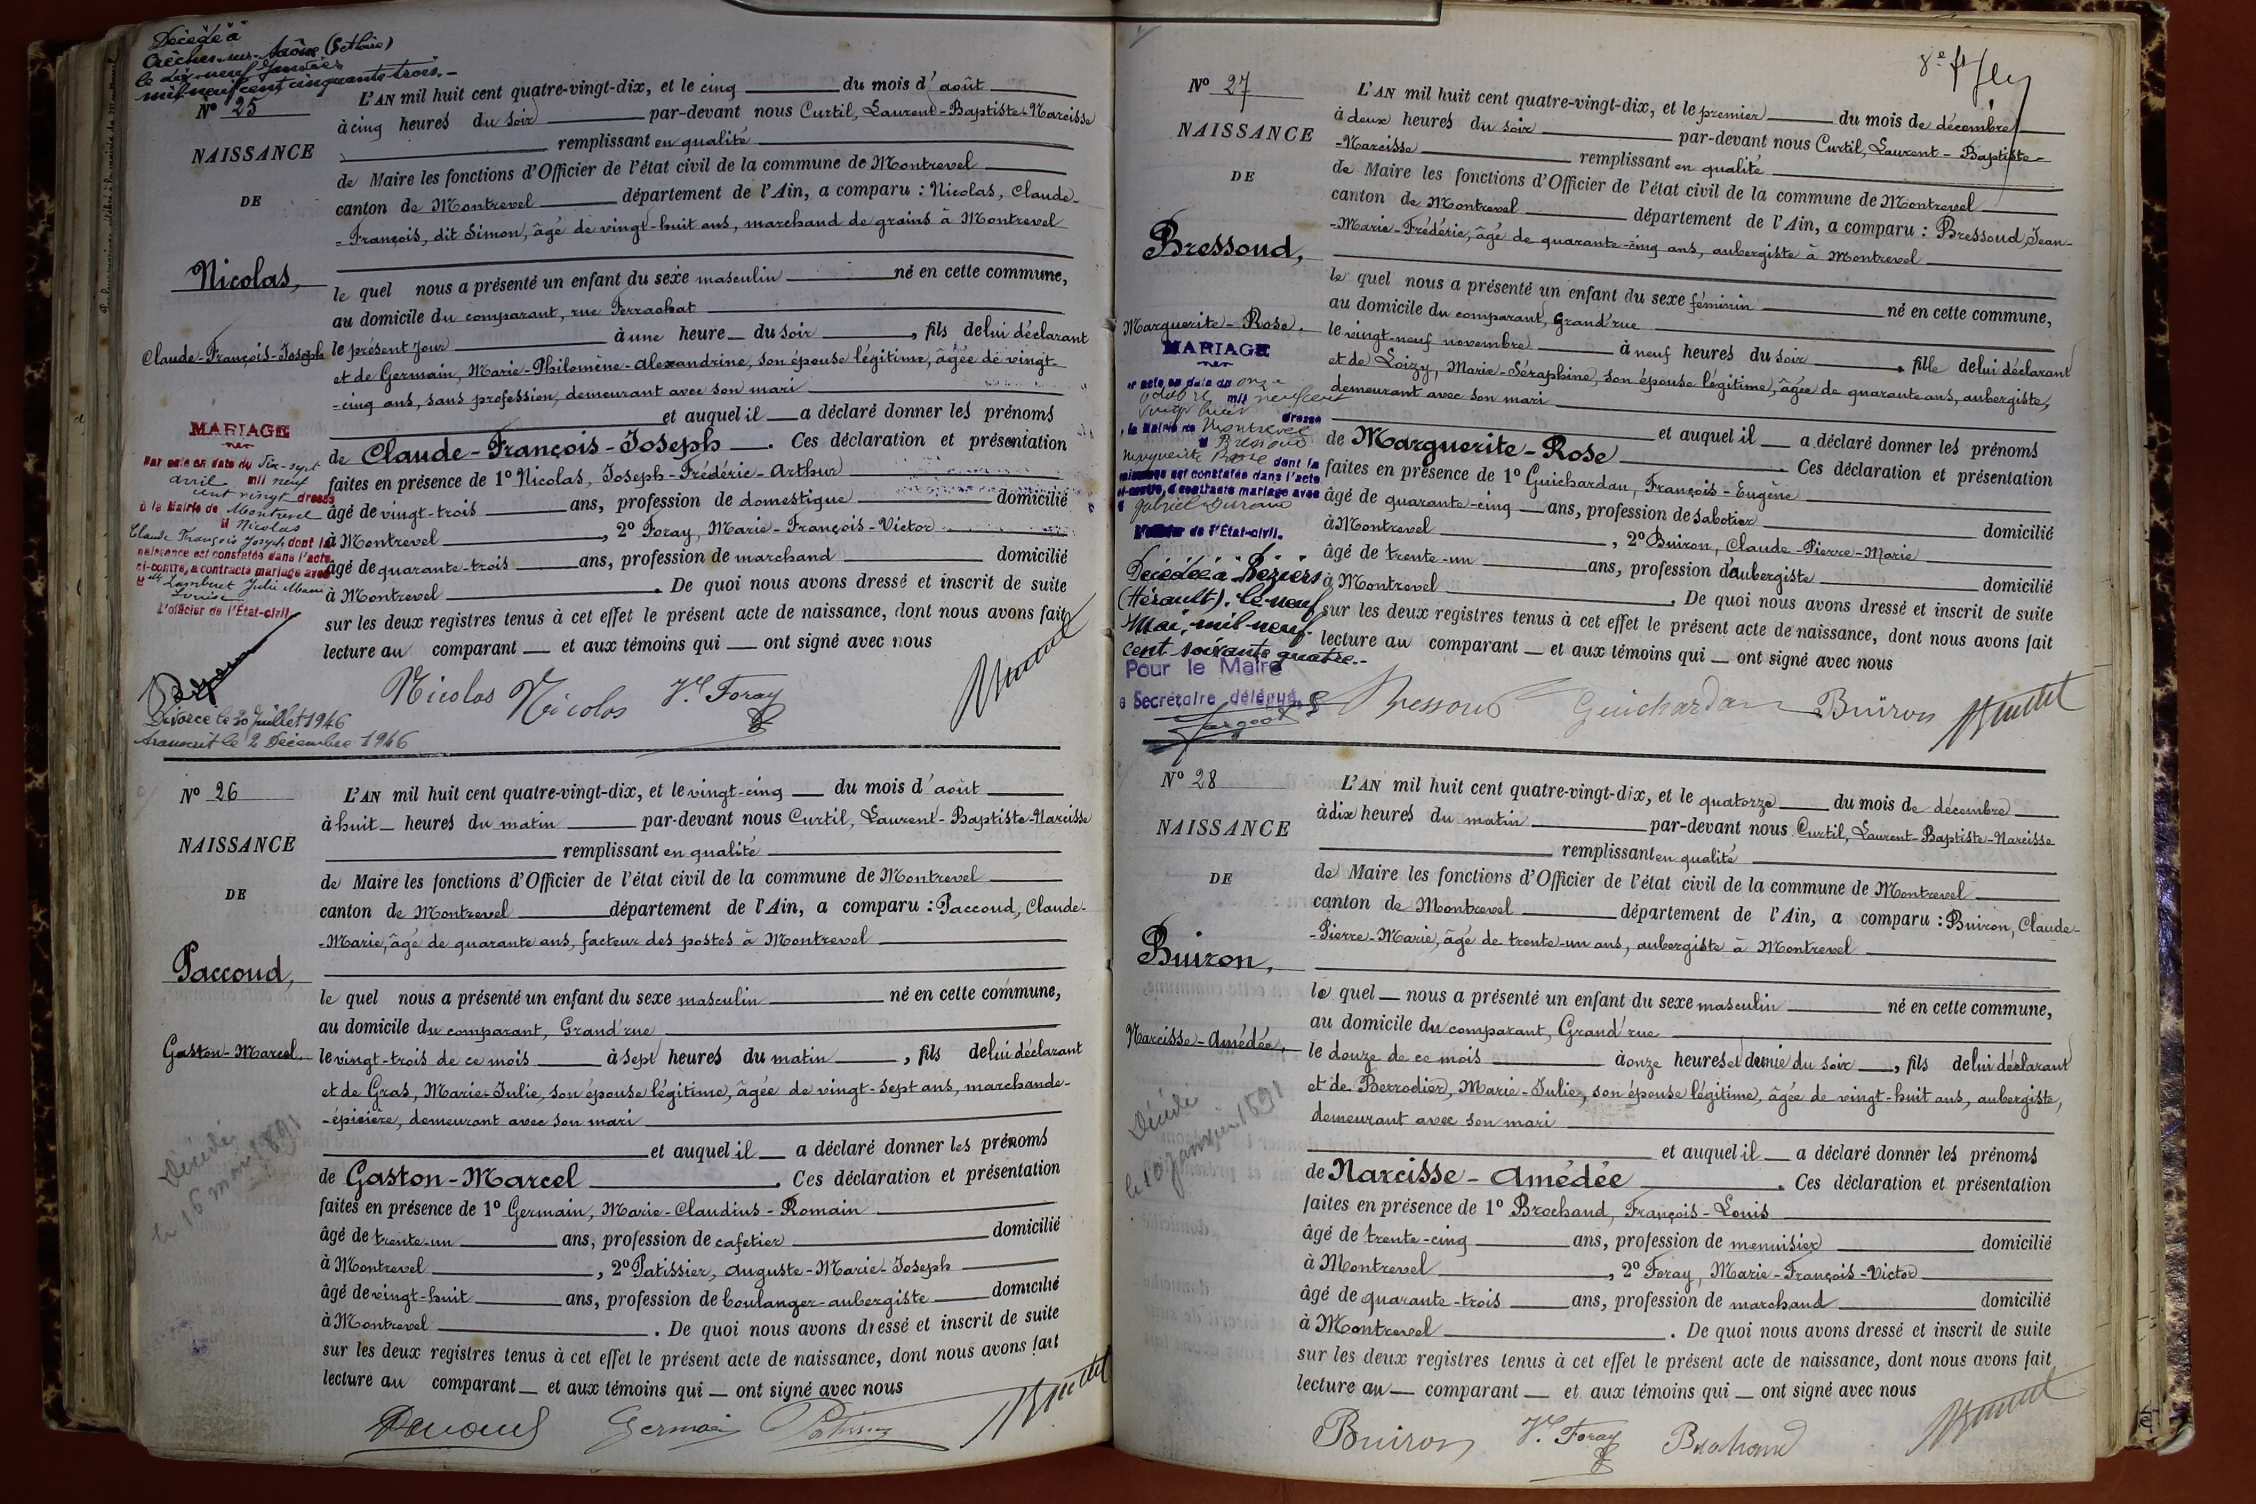 Décédé à
Crèches-sur-Saône (S et Loire)
le dix-neuf Janvier
mil neuf cent cinquante-trois.-
Nº 25
NAISSANCE
DE
Nicolas,
Claude-François-Joseph
MARIAGE
Par acte en date du dix-sept
avril mil neuf
cent vingt dressé
à la Mairie de Montrevel
M Nicolas
Claude François Joseph dont la
naissance est constatée dans l'acte
ci-contre, a contracté mariage avec
Mlle Lambert Julie Marie
Louise
L'officier de l'État-civil,
Divorcé le 30 Juillet 1946
transcrit le 2 Décembre 1946
L'AN mil huit cent quatre-vingt-dix, et le cinq du mois d'août
à cinq heures du soir par-devant nous Curtil, Laurent-Baptiste-Narcisse
remplissant en qualité
de Maire les fonctions d'Officier de l'état civil de la commune de Montrevel
canton de Montrevel département de l'Ain, a comparu : Nicolas, Claude-
-François, dit Simon, âgé de vingt-huit ans, marchand de grains à Montrevel
le quel nous a présenté un enfant du sexe masculin né en cette commune,
au domicile du comparant, rue Ferrachat
le présent jour à une heure du soir, fils de lui déclarant
et de Germain, Marie-Philomène-Alexandrine, son épouse légitime, âgée de vingt-
-cinq ans, sans profession, demeurant avec son mari
et auquel il a déclaré donner les prénoms
de Claude-François-Joseph. Ces déclaration et présentation
faites en présence de 1º Nicolas, Joseph-Frédéric-Arthur
âgé de vingt-trois ans, profession de domestique domicilié
à Montrevel, 2º Foray, Marie-François-Victor
âgé de quarante-trois ans, profession de marchand domicilié
à Montrevel. De quoi nous avons dressé et inscrit de suite
sur les deux registres tenus à cet effet le présent acte de naissance, dont nous avons fait
lecture au comparant et aux témoins qui ont signé avec nous
Nicolas Nicolas Vr Foray
Nº 26
NAISSANCE
DE
Paccoud,
Gaston-Marcel
Décédé
le 16 mai 1891
L'AN mil huit cent quatre-vingt-dix, et le vingt-cinq du mois d'août
à huit heures du matin par-devant nous Curtil, Laurent-Baptiste-Narcisse
remplissant en qualité
de Maire les fonctions d'Officier de l'état civil de la commune de Montrevel
canton de Montrevel département de l'Ain, a comparu : Paccoud, Claude-
-Marie, âgé de quarante ans, facteur des postes à Montrevel
le quel nous a présenté un enfant du sexe masculin né en cette commune,
au domicile du comparant, Grand'rue
le vingt-trois de ce mois à sept heures du matin, fils de lui déclarant
et de Gras, Marie-Julie, son épouse légitime, âgée de vingt-sept ans, marchande-
-épicière, demeurant avec son mari
et auquel il a déclaré donner les prénoms
de Gaston-Marcel. Ces déclaration et présentation
faites en présence de 1º Germain, Marie-Claudius-Romain
âgé de trente-un ans, profession de cafetier domicilié
à Montrevel, 2º Patissier, Auguste-Marie-Joseph
âgé de vingt-huit ans, profession de boulanger-aubergiste domicilié
à Montrevel. De quoi nous avons dressé et inscrit de suite
sur les deux registres tenus à cet effet le présent acte de naissance, dont nous avons fait
lecture au comparant et aux témoins qui ont signé avec nous
Germain
8e
Nº 27
NAISSANCE
DE
Bressoud,
Marguerite-Rose.
MARIAGE
Par acte en date du onze
octobre mil neuf cent
vingt huit dressé
à la Mairie de Montrevel
M Bressoud
Marguerite Rose dont la
naissance est constatée dans l'acte
ci-contre, a contracté mariage avec
Gabriel Durand
L'officier de l'État-civil.
Décédée à Béziers
(Hérault). le neuf
Mai, mil neuf-
cent soixante quatre.-
Pour le Maire
Le Secrétaire délégué,
L'AN mil huit cent quatre-vingt-dix, et le premier du mois de décembre
à deux heures du soir par-devant nous Curtil, Laurent-Baptiste-
-Narcisse remplissant en qualité
de Maire les fonctions d'Officier de l'état civil de la commune de Montrevel
canton de Montrevel département de l'Ain, a comparu : Bressoud, Jean-
-Marie-Frédéric, âgé de quarante-cinq ans, aubergiste à Montrevel
le quel nous a présenté un enfant du sexe féminin né en cette commune,
au domicile du comparant, Grand'rue
le vingt-neuf novembre à neuf heures du soir, fille de lui déclarant
et de Loizy, Marie-Séraphine, son épouse légitime, âgée de quarante ans, aubergiste,
demeurant avec son mari
et auquel il a déclaré donner les prénoms
de Marguerite-Rose. Ces déclaration et présentation
faites en présence de 1º Guichardan, François-Eugène
âgé de quarante-cinq ans, profession de sabotier domicilié
à Montrevel, 2º Buiron, Claude-Pierre-Marie
âgé de trente-un ans, profession d'aubergiste domicilié
à Montrevel. De quoi nous avons dressé et inscrit de suite
sur les deux registres tenus à cet effet le présent acte de naissance, dont nous avons fait
lecture au comparant et aux témoins qui ont signé avec nous
Bressoud Guichardan Buiron
Nº 28
NAISSANCE
DE
Buiron,
Narcisse-Amédée,
Décédé
le 10 janvier 1891
L'AN mil huit cent quatre-vingt-dix, et le quatorze du mois de décembre
à dix heures du matin par-devant nous Curtil, Laurent-Baptiste-Narcisse
remplissant en qualité
de Maire les fonctions d'Officier de l'état civil de la commune de Montrevel
canton de Montrevel département de l'Ain, a comparu : Buiron, Claude-
-Pierre-Marie, âgé de trente-un ans, aubergiste à Montrevel
le quel nous a présenté un enfant du sexe masculin né en cette commune,
au domicile du comparant, Grand'rue
le douze de ce mois à onze heures et demie du soir, fils de lui déclarant
et de Berrodier, Marie-Julie, son épouse légitime, âgée de vingt-huit ans, aubergiste,
demeurant avec son mari
et auquel il a déclaré donner les prénoms
de Narcisse-Amédée. Ces déclaration et présentation
faites en présence de 1º Brochand, François-Louis
âgé de trente-cinq ans, profession de menuisier domicilié
à Montrevel, 2º Foray, Marie-François-Victor
âgé de quarante-trois ans, profession de marchand domicilié
à Montrevel. De quoi nous avons dressé et inscrit de suite
sur les deux registres tenus à cet effet le présent acte de naissance, dont nous avons fait
lecture au comparant et aux témoins qui ont signé avec nous
Buiron Vr Foray Brochand